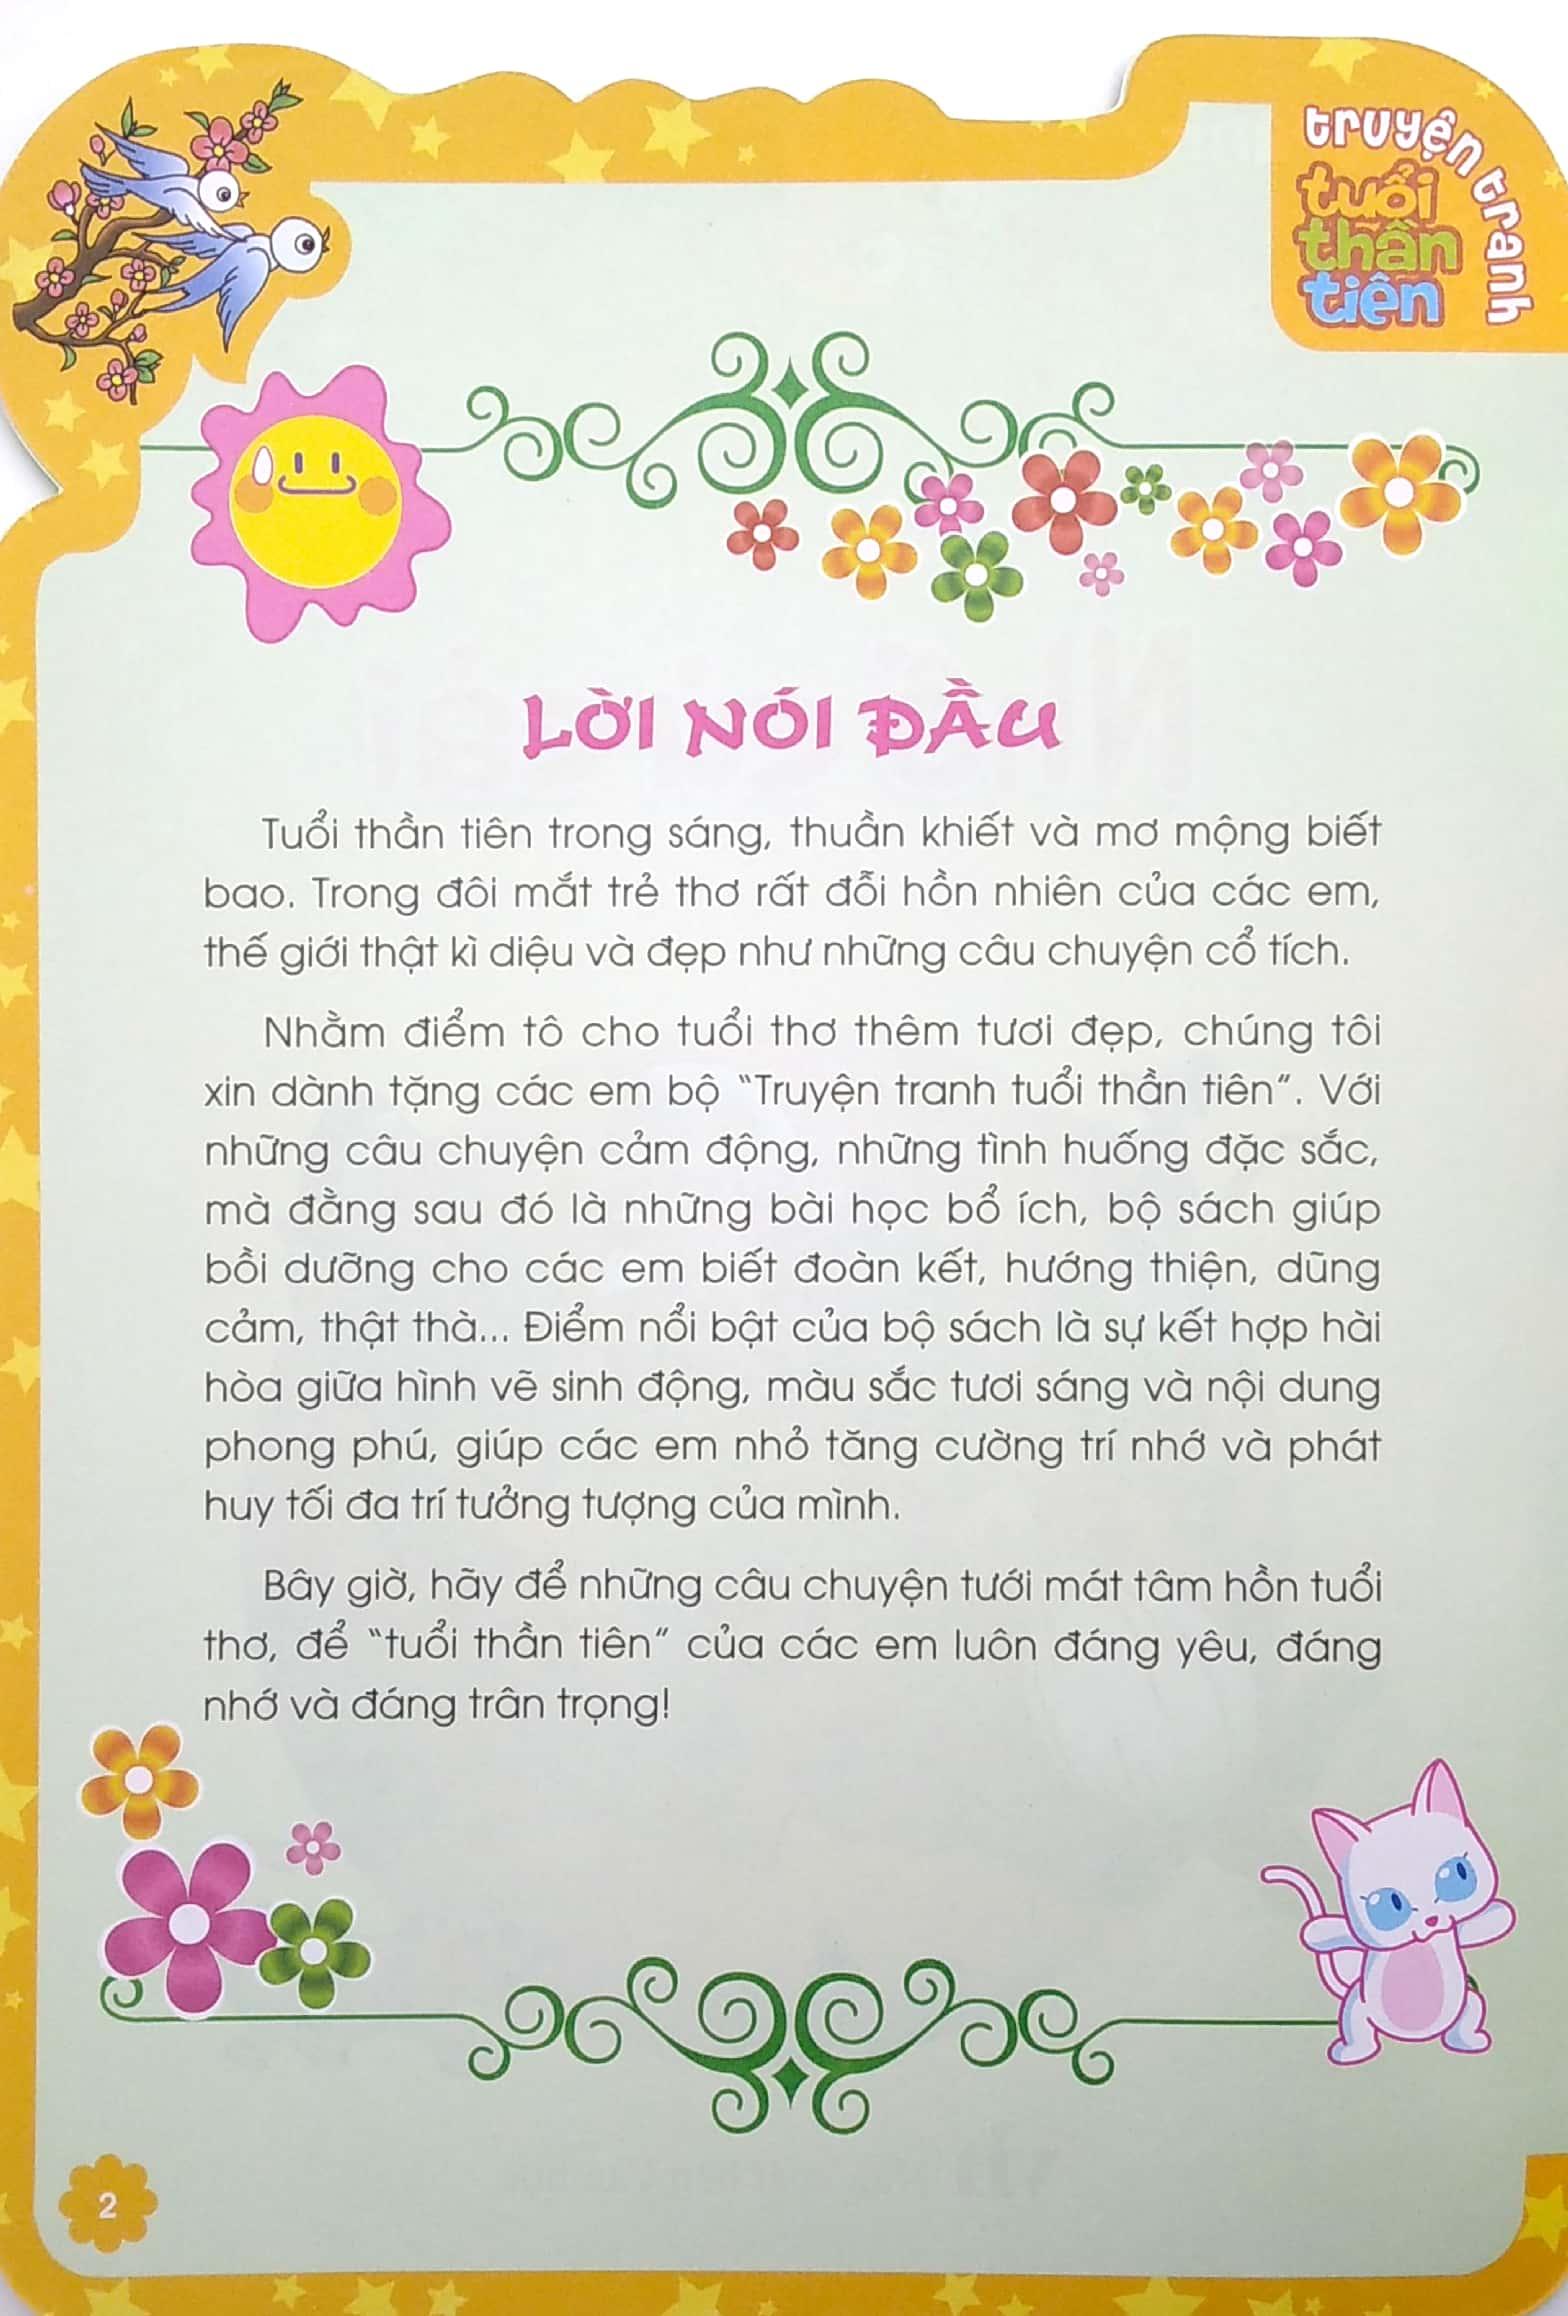 truyện tranh
tuổi
thần
tiên
LỜI NÓI ĐẦU
Tuổi thần tiên trong sáng, thuần khiết và mơ mộng biết
bao. Trong đôi mắt trẻ thơ rất đỗi hồn nhiên của các em,
thế giới thật kì diệu và đẹp như những câu chuyện cổ tích.
Nhằm điểm tô cho tuổi thơ thêm tươi đẹp, chúng tôi
xin dành tặng các em bộ “Truyện tranh tuổi thần tiên”. Với
những câu chuyện cảm động, những tình huống đặc sắc,
mà đằng sau đó là những bài học bổ ích, bộ sách giúp
bồi dưỡng cho các em biết đoàn kết, hướng thiện, dũng
cảm, thật thà... Điểm nổi bật của bộ sách là sự kết hợp hài
hòa giữa hình vẽ sinh động, màu sắc tươi sáng và nội dung
phong phú, giúp các em nhỏ tăng cường trí nhớ và phát
huy tối đa trí tưởng tượng của mình.
Bây giờ, hãy để những câu chuyện tưới mát tâm hồn tuổi
thơ, để “tuổi thần tiên” của các em luôn đáng yêu, đáng
nhớ và đáng trân trọng!
2